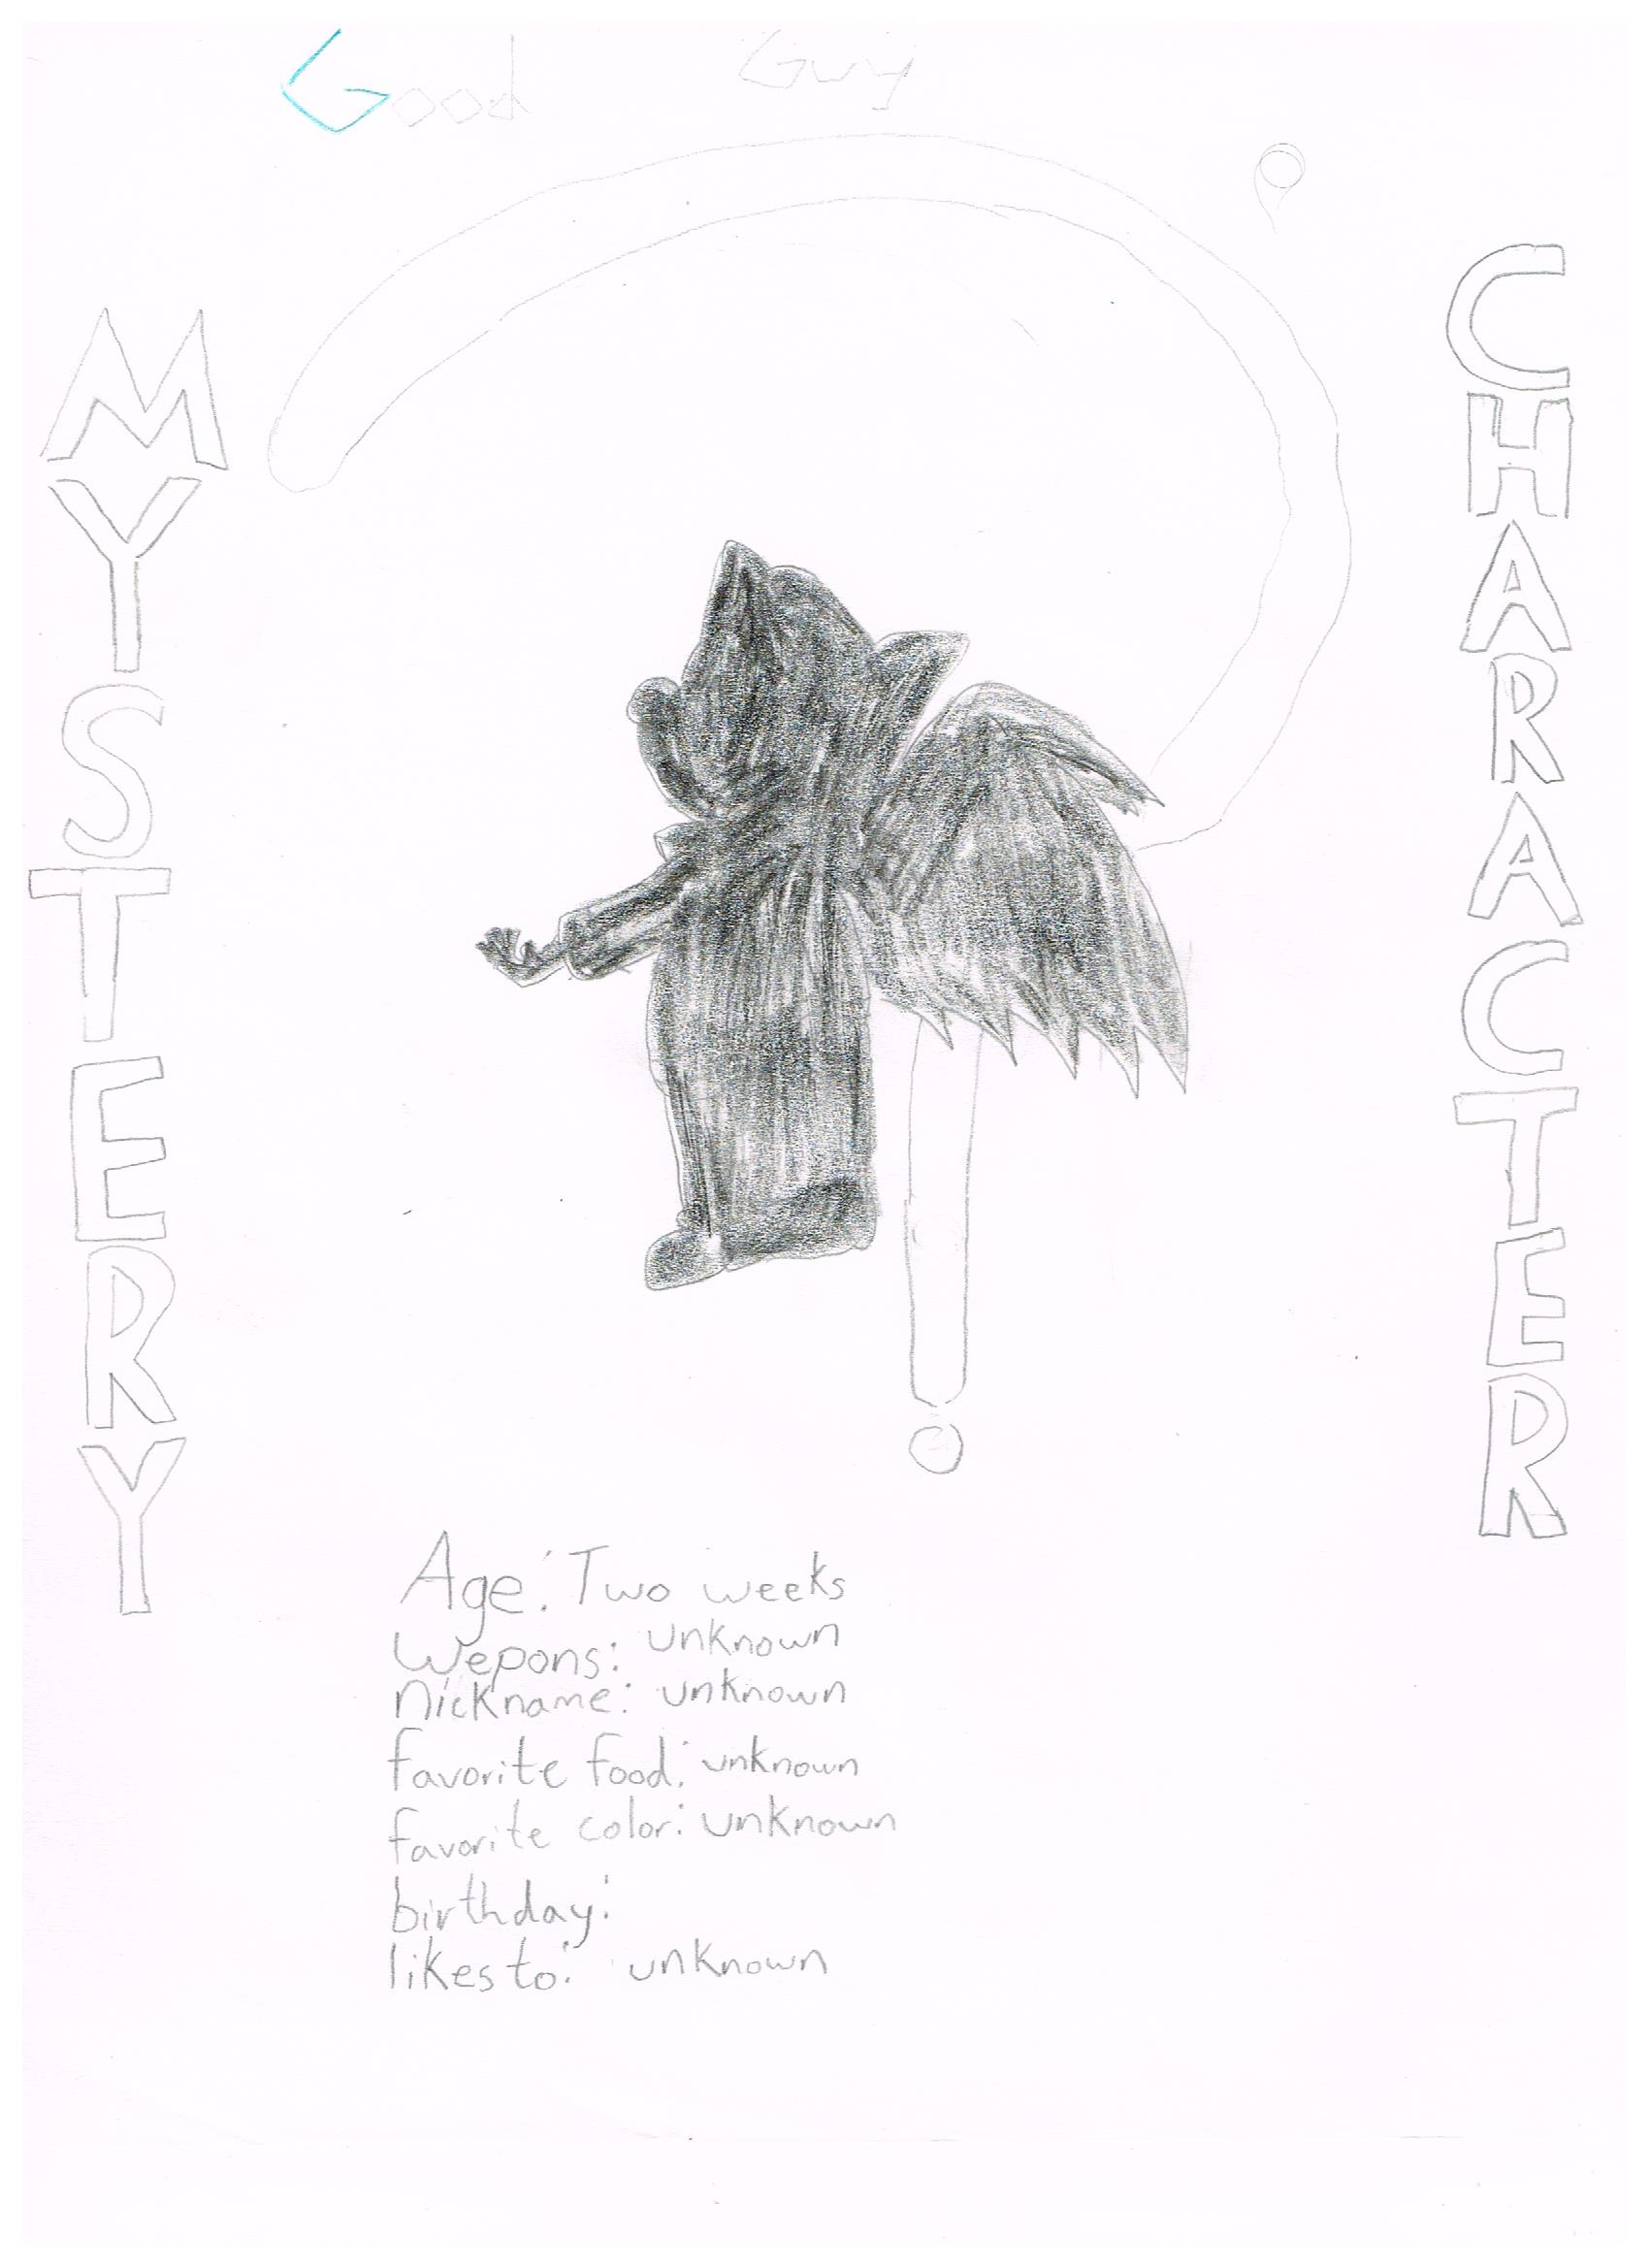 Good Guy
MYSTERY
CHARACTER
Age: Two weeks
Wepons: unknown
Nickname: unknown
favorite food: unknown
favorite color: unknown
birthday:
likes to: unknown